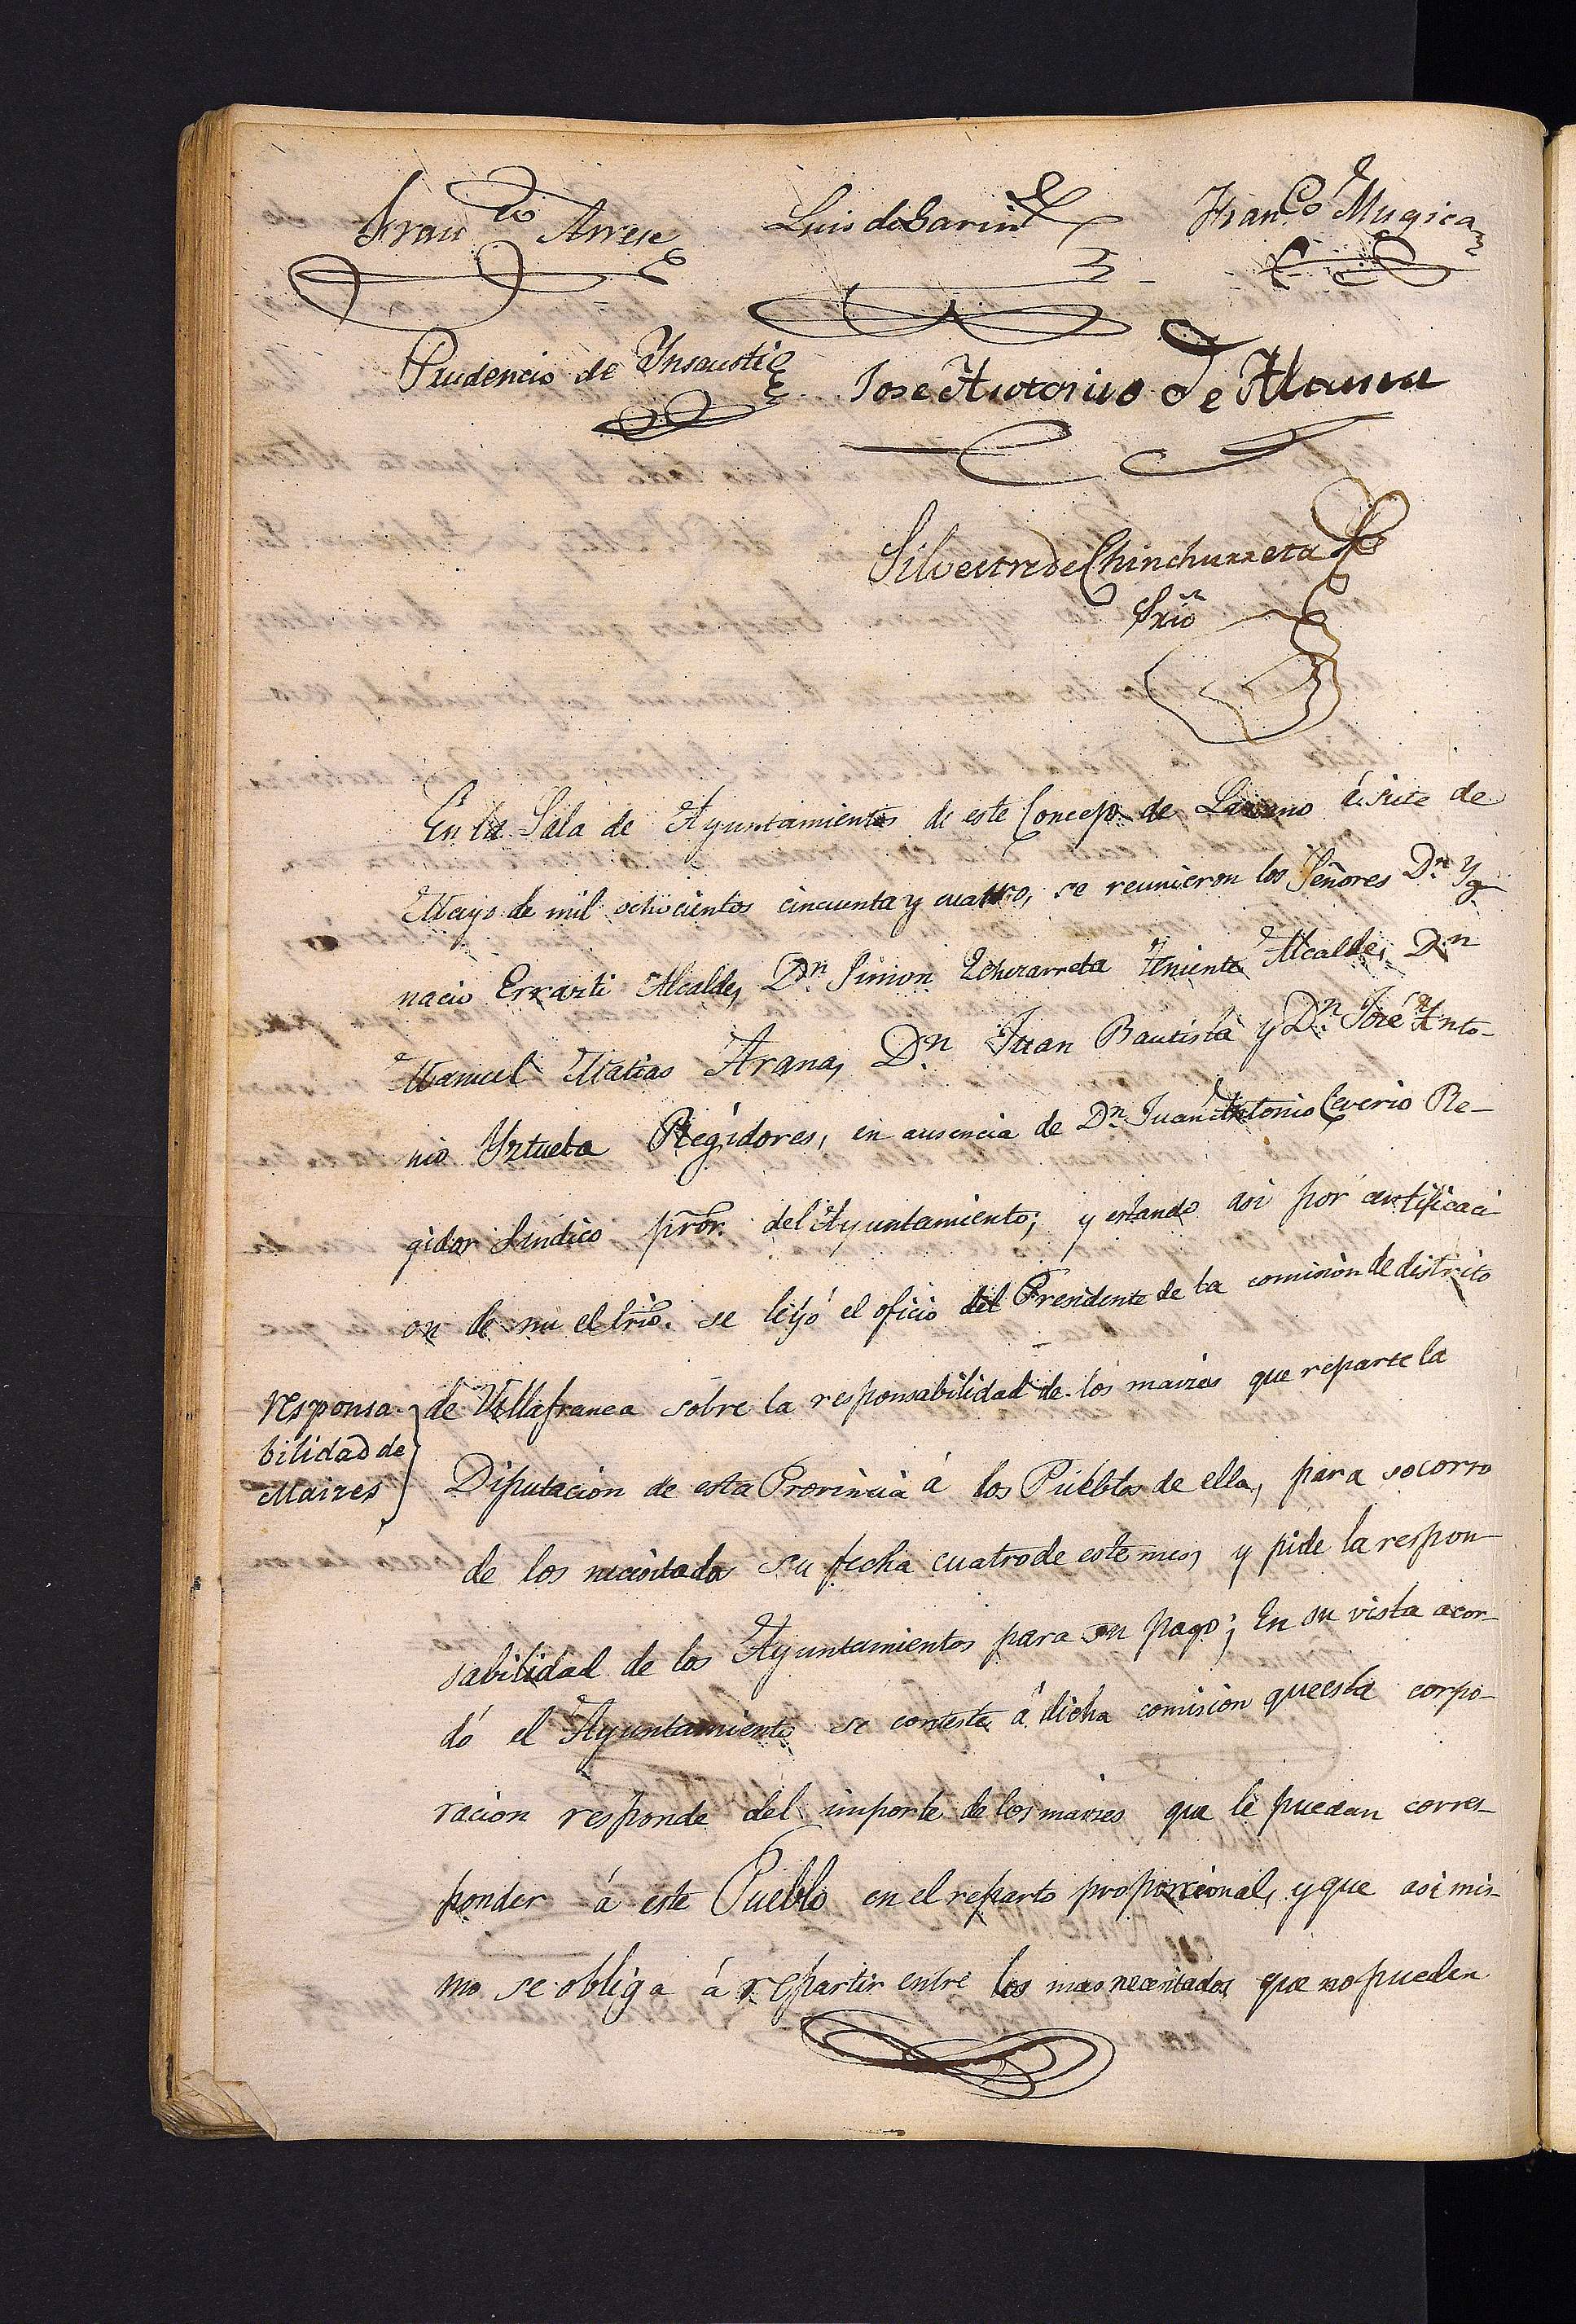 Fran.co Arrese
Luis de Garin
Fran.co Mugica
Prudencio de Ynsausti
Jose Antonio de Alauna
Silvestre de Chinchurreta
Srio
En la Sala de Ayuntamientos de este Concejo de Lazcano á siete de
Mayo de mil ochocientos cincuenta y cuatro, se reunieron los Señores Dn. Yg-
nacio Errazti Alcalde, Dn. Simon Echezarreta Teniente Alcalde, Dn
Manuel Matias Arana, Dn. Juan Bautista y Dn. José Anto-
nio Yztueta Regidores, en ausencia de Dn. Juan Antonio Ceverio Re-
gidor Sindico pror. del Ayuntamiento; y estando asi por certificaci
on de mi el Srio. se leyó el oficio del Presidente de la comision de distrito
de Villafranca sobre la responsabilidad de los maizes que reparte la
Responsa-
bilidad de
Maizes
Diputacion de esta Provincia á los Pueblos de ella, para socorro
de los necesitados su fecha cuatro de este mes, y pide la respon-
sabilidad de los Ayuntamientos para su pago; En su vista acor-
dó el Ayuntamiento se conteste á dicha comision que esta corpo-
racion responde del importe de los maizes que le puedan corres-
ponder á este Pueblo en el reparto proporcional, y que asi mis-
mo se obliga á repartir entre los mas necesitados que no pueden